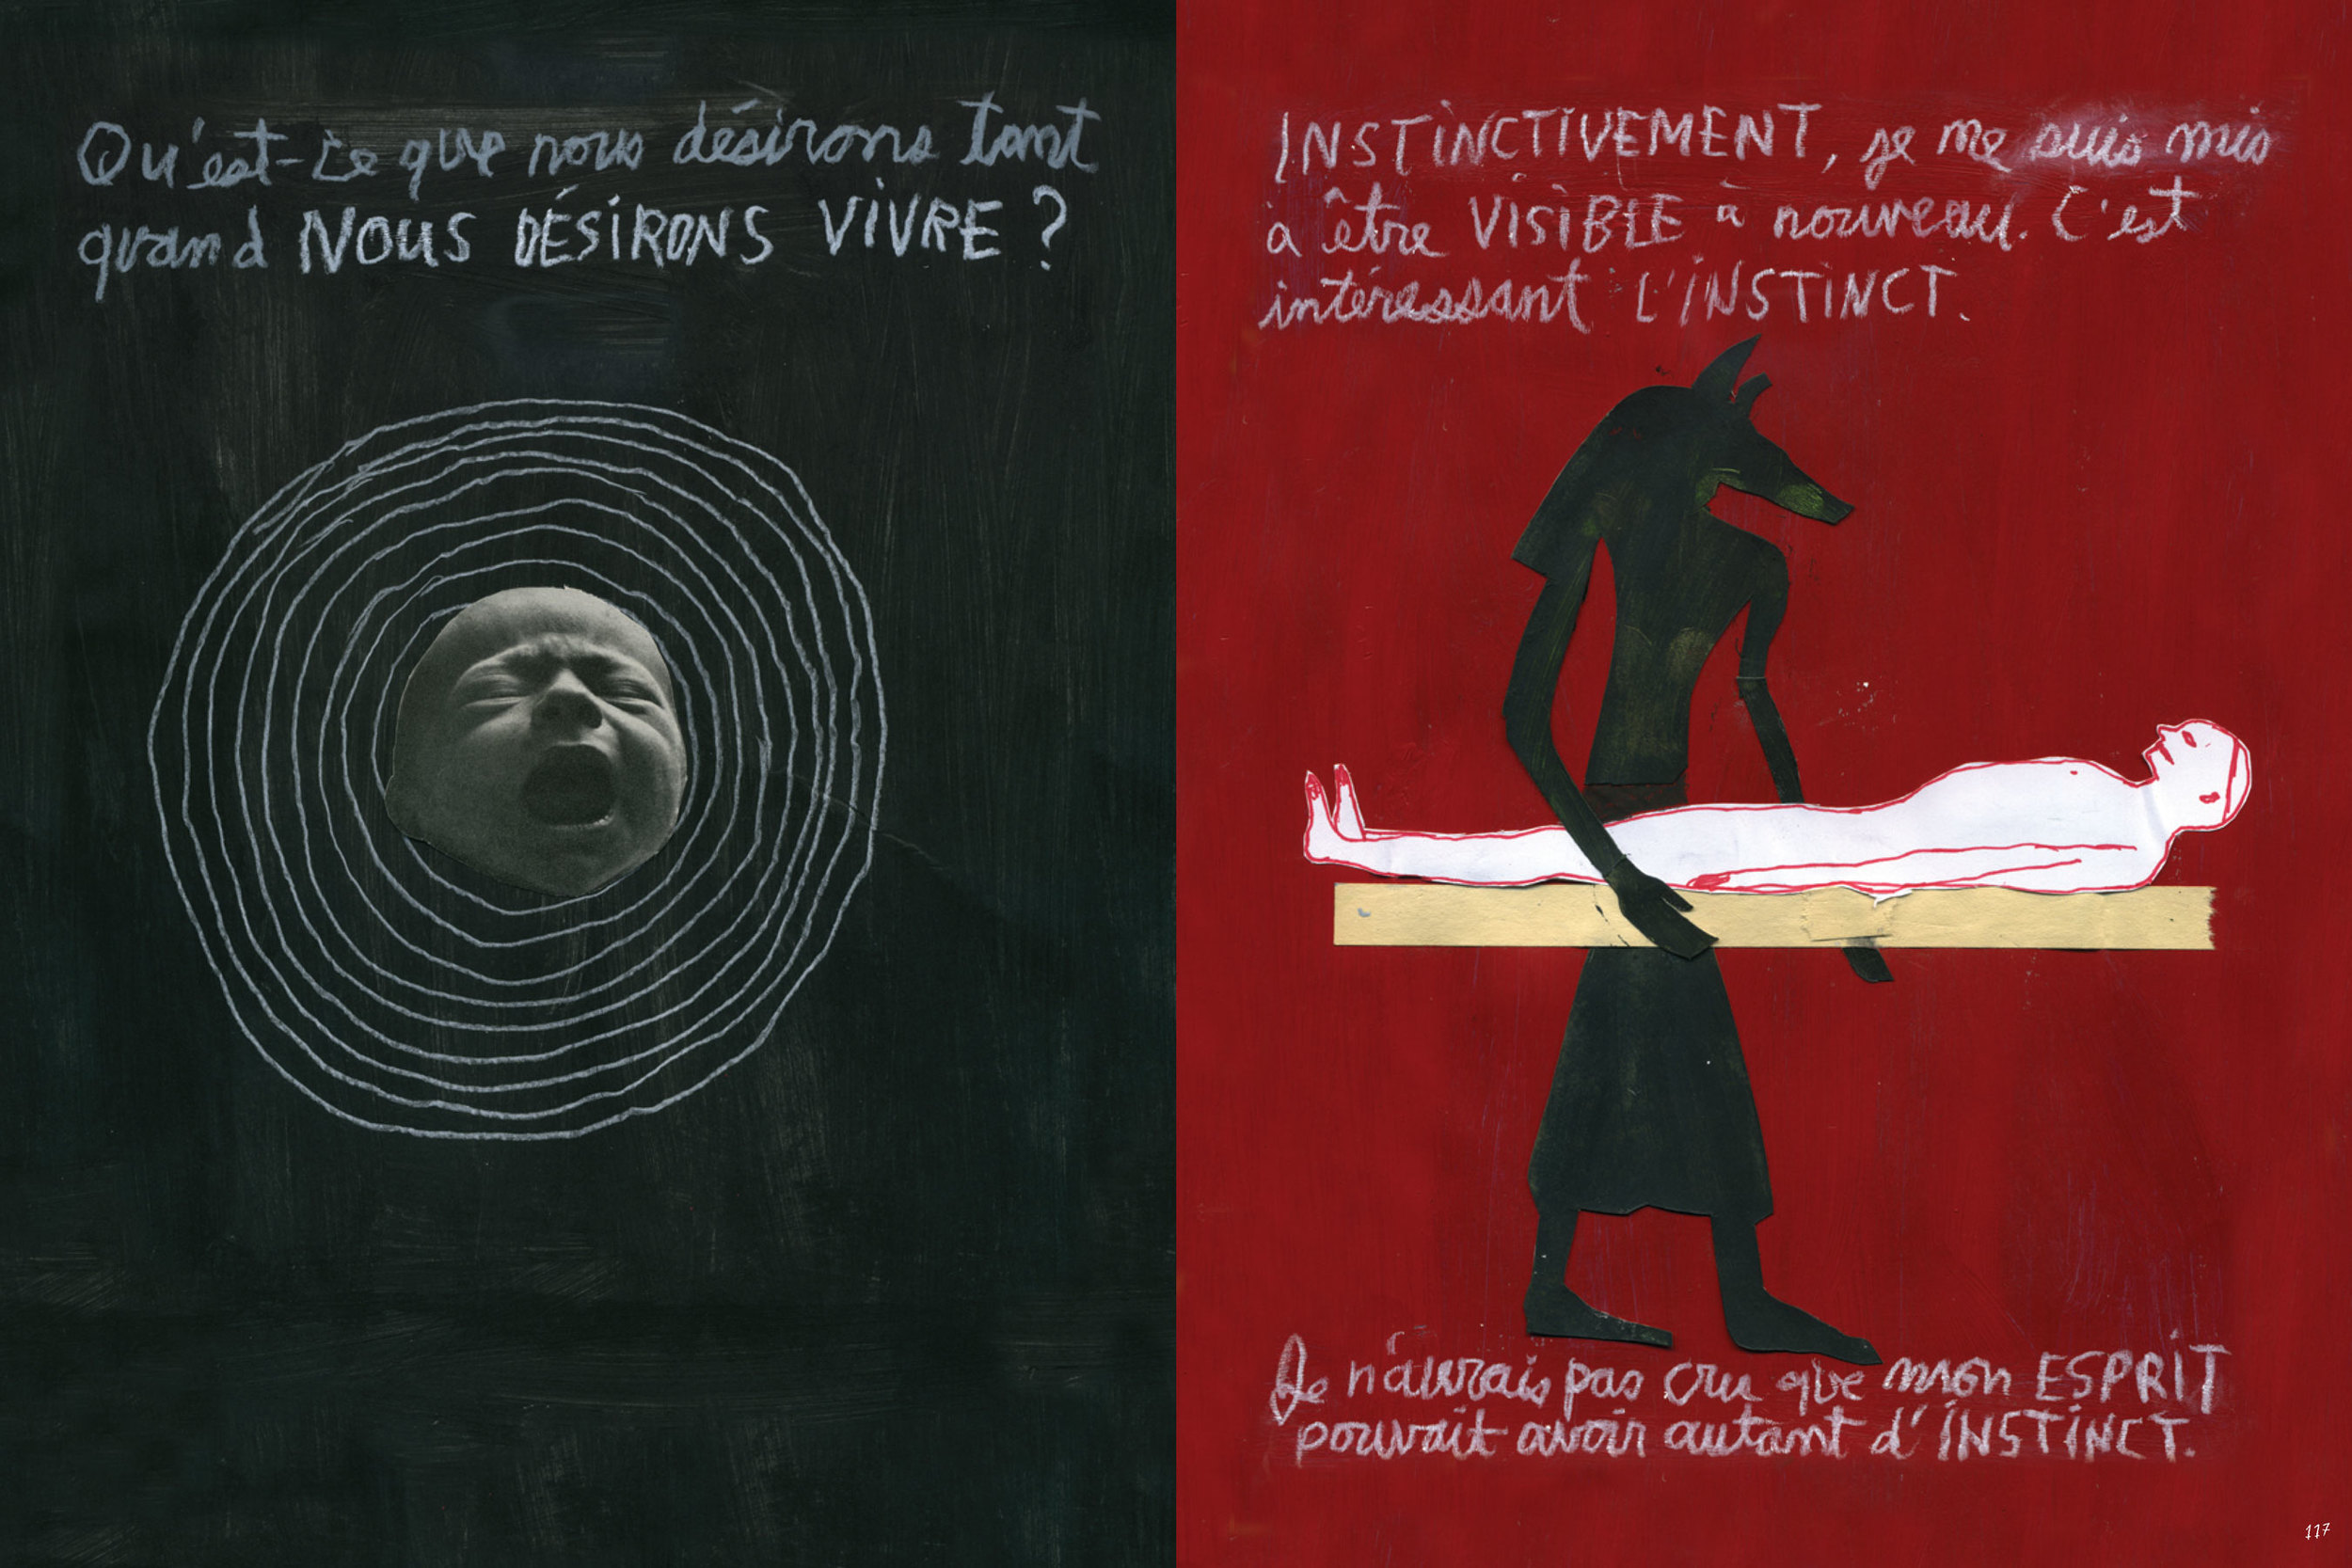 Qu'est-ce que nous désirons tant
quand NOUS DÉSIRONS VIVRE ?
INSTINCTIVEMENT, je me suis mis
à être VISIBLE à nouveau. C'est
intéressant L'INSTINCT.
Je n'aurais pas cru que mon ESPRIT
pouvait avoir autant d'INSTINCT.
117